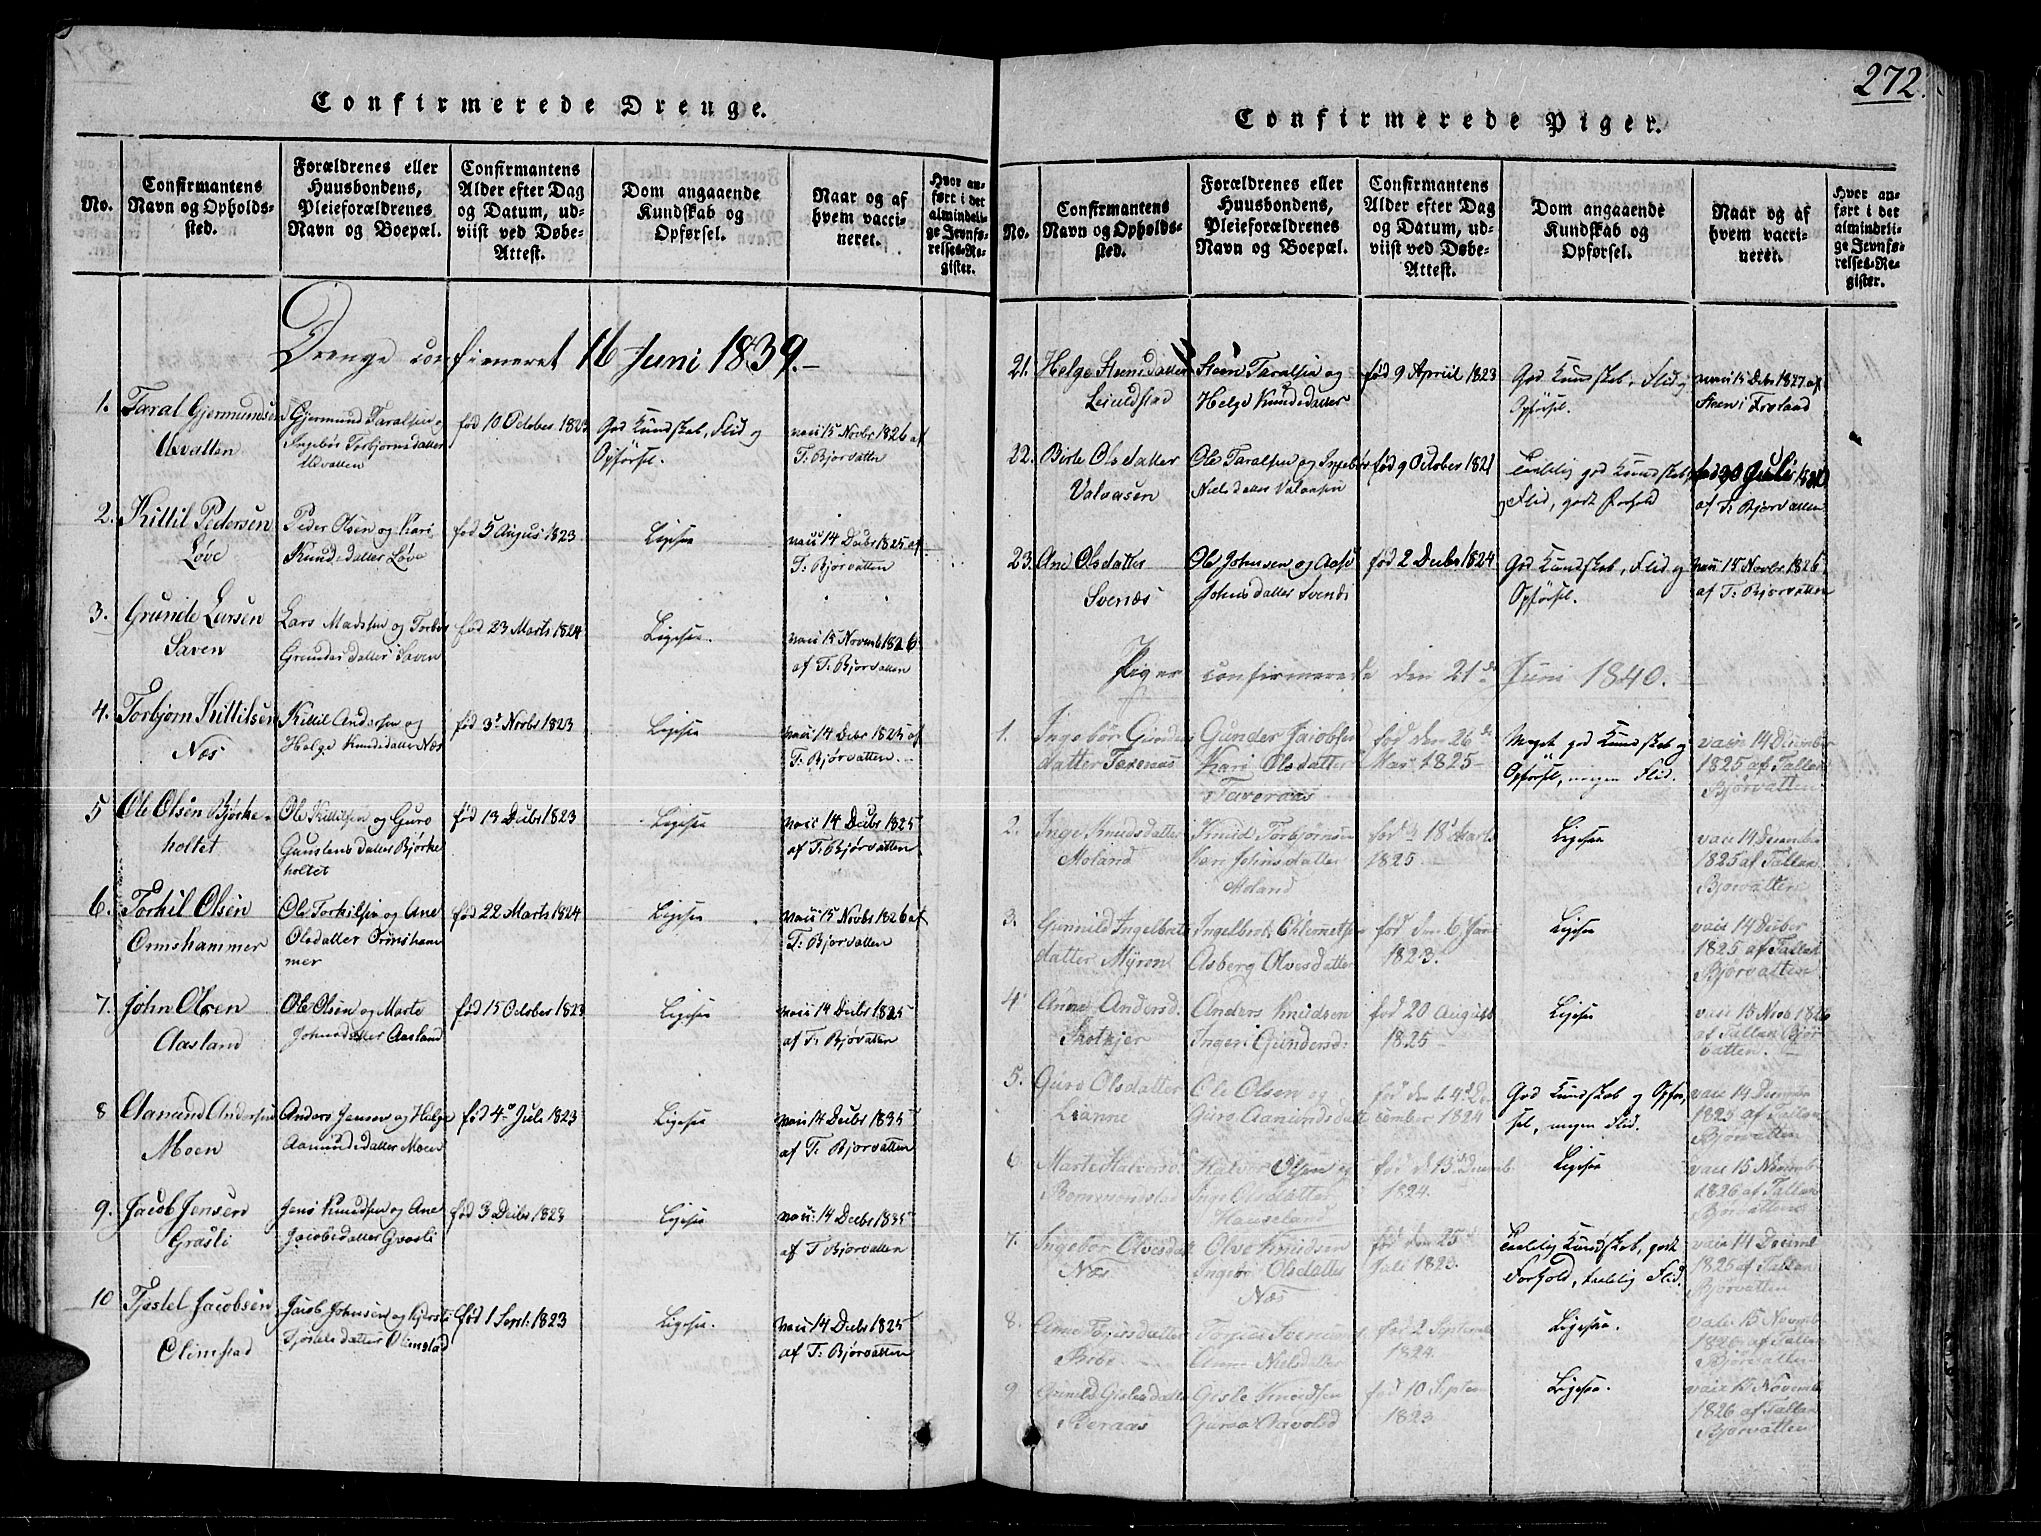 272.
Confirmerede Drenge.
No.
Confirmantens Navn og Opholdssted.
Forældrenes eller Huusbondens, Pleieforældrenes Navn og Boepæl.
Confirmantens Alder efter Dag og Datum, udviist ved Døbe-Attest.
Dom angaaende Kundskab og Opførsel.
Naar og af hvem vaccineret.
Hvor anført i det almindelige Jevnførelses-Register.
Drenge confirmeret 16 Juni 1839.
1. Taral Gjermundsen
Gjermund Taralsen og
Ingebør Torbjørnsdatter
Uevatten
fød 10 October 1823
God Kundskab, Flid og
Opførsel.
vacc 15 Novbr 1826 af
T. Bjorvatten
2. Kittil Pedersen
Løve
Peder Olsen og Kari
Knudsdatter Løve
fød 5 August 1823
Ligesaa
vacc 14 Decbr 1825 af
T. Bjørvatten
3. Grunde Larsen
Saven
Lars Madsen og Torbor
Grundesdatter Saven
fød 23 Marts 1824
Ligesaa.
vacc 15 Novemb 1826
af T. Bjørvatten
4. Torbjørn Kittilsen
Næs
Kittil Andersen og
Helge Knudsdatter Næs
fød 3 Novbr 1823
Ligesaa
vacc 14 Decbr 1825 af
T. Bjørvatten.
5 Ole Olsen Bjørke-
holtet
Ole Kittilsen og Guro
Gunstensdatter Bjørke
holtet
fød 13 Decbr 1823
Ligesaa
vacc 14 Decbr 1825
af T. Bjørvatten
6. Torkil Olsen
Ormshammer
Ole Torkilsen og Ane
Olsdatter Ormsham
mer
fød 22 Marts 1824
Ligesaa
vacc 15 Novbr 1826 af
T. Bjørvatten
7. John Olsen
Aasland
Ole Olsen og Marte
Johnsdatter Aasland
fød 15 October 1823
Ligesaa
vacc 14 Decbr 1825
af T. Bjørvatten
8 Aanund Andersen
Moen
Anders Jensen og Helge
Aanundsdatter Moen
fød 4 Juli 1823
Ligesaa
vacc 14 Decbr 1835
af T. Bjorvatten
9. Jacob Jensen
Grasli
Jens Knudsen og Ane
Jacobsdatter Grasli
fød 3 Decbr 1823
Ligesaa
vacc 14 Decbr 1835
af T. Bjorvatten
10 Tjøstel Jacobsen
Olimstad
Jacob Johnsen og Kjersti
Tjøstelsdatter Olimstad
fød 1 Septb 1823
Ligesaa.
vacc 14 Decbr 1825
af T. Bjørvatten
Confirmerede Piger.
No.
Confirmantens Navn og Opholdssted.
Forældrenes eller Huusbondens, Pleieforældrenes Navn og Boepæl.
Confirmantens Alder efter Dag og Datum, udviist ved Døbe-Attest.
Dom angaaende Kundskab og Opførsel.
Naar og af hvem vaccineret.
Hvor anført i det almindelige Jevnførelses-Register.
21. Helge Steensdatter
Steen Taralsen og
Helge Knudsdatter
fød 9 April 1823
God Kundskab, Flid og
Opførsel.
vacc 15 Decbr 1827 af
Steen i Froland
22. Birte Olsdatter
Valaasen
Ole Taralsen og Ingebør
Nielsdatter Valaasen
fød 9 October 1821
Taalelig god Kundskab
og Flid, godt Forhold
af T. Bjørvatten
23. Ane Olsdatter
Svenæs
Ole Johnsen og Aase
Johnsdatter Svenæs
fød 2 Decbr 1824
God Kundskab, Flid og
Opførsel.
vacc 15 Novbr 1826
af T. Bjørvatten
Piger confirmerede den 21de Juni 1840.
1. Ingebør Gunders
datter Taxeraas
Gunder Jacobsen
Kari Olsdatter
Taxeraas
fød den 26de
Mai 1825
Meget god Kundskab og
Opførsel, megen Flid.
vacc 14 December
1825 af Tallan
Bjørvatten
2. Inge Knudsdatter
Moland
Knud Torbjørnsen
Kari Johnsdatter
Moland
fød d 18 Marts
1825
Ligesaa
vacc 14 December
1825 af Tallan
Bjorvatten
3. Gunnild Ingelbrets
datter Myren
Ingelbret Clemetsen
Asberg Olvesdatter
fød den 6 Jan
1823.
Ligesaa
vacc 14 Decber
1825 af Tallan
Bjorvatten
4 Anne Andersd.
Anders Knudsen
Ingeri Gundersd.
fød 20 August
1825
Ligesaa
vacc 15 Novb 1826
af Tallan Bjør
vatten.
5. Guro Olsdatter
Lianne
Ole Olsen og
Guro Aanundsdatt
fød den 14 De
cember 1824
God Kundskab og Opfør
sel, megen Flid.
vacc 14 December
1825 af Tallan
Bjørvatten
6. Marte Halvorsd
Halvor Olsen og
Inge Olsdatter
Hauseland
fød d 13 Decemb
1824.
Ligesaa
vacc 15 Novemb
1826 af Tallan
Bjorvatten
7. Ingebør Olvesdatt
Næs
Olve Knudsen
Ingebr Olsdatter
Næs
fød den 25
Juli 1823.
Taalelig Kundskab, godt
Forhold, taalelig Flid.
vacc 14 Decemb
1825 af Tallan
Bjørvatten
8.
Anne Nielsdatter
fød 2 September
1824
Ligesaa.
vacc 15 Novemb
1826 af Tallan
Bjørvatten
9 Gunild Gislesdatter
Beraas
Gisle Knudsen
fød 10 Septem
1823
Ligesaa.
vacc 15 Novemb
1826 af Tallan
Bjorvatten